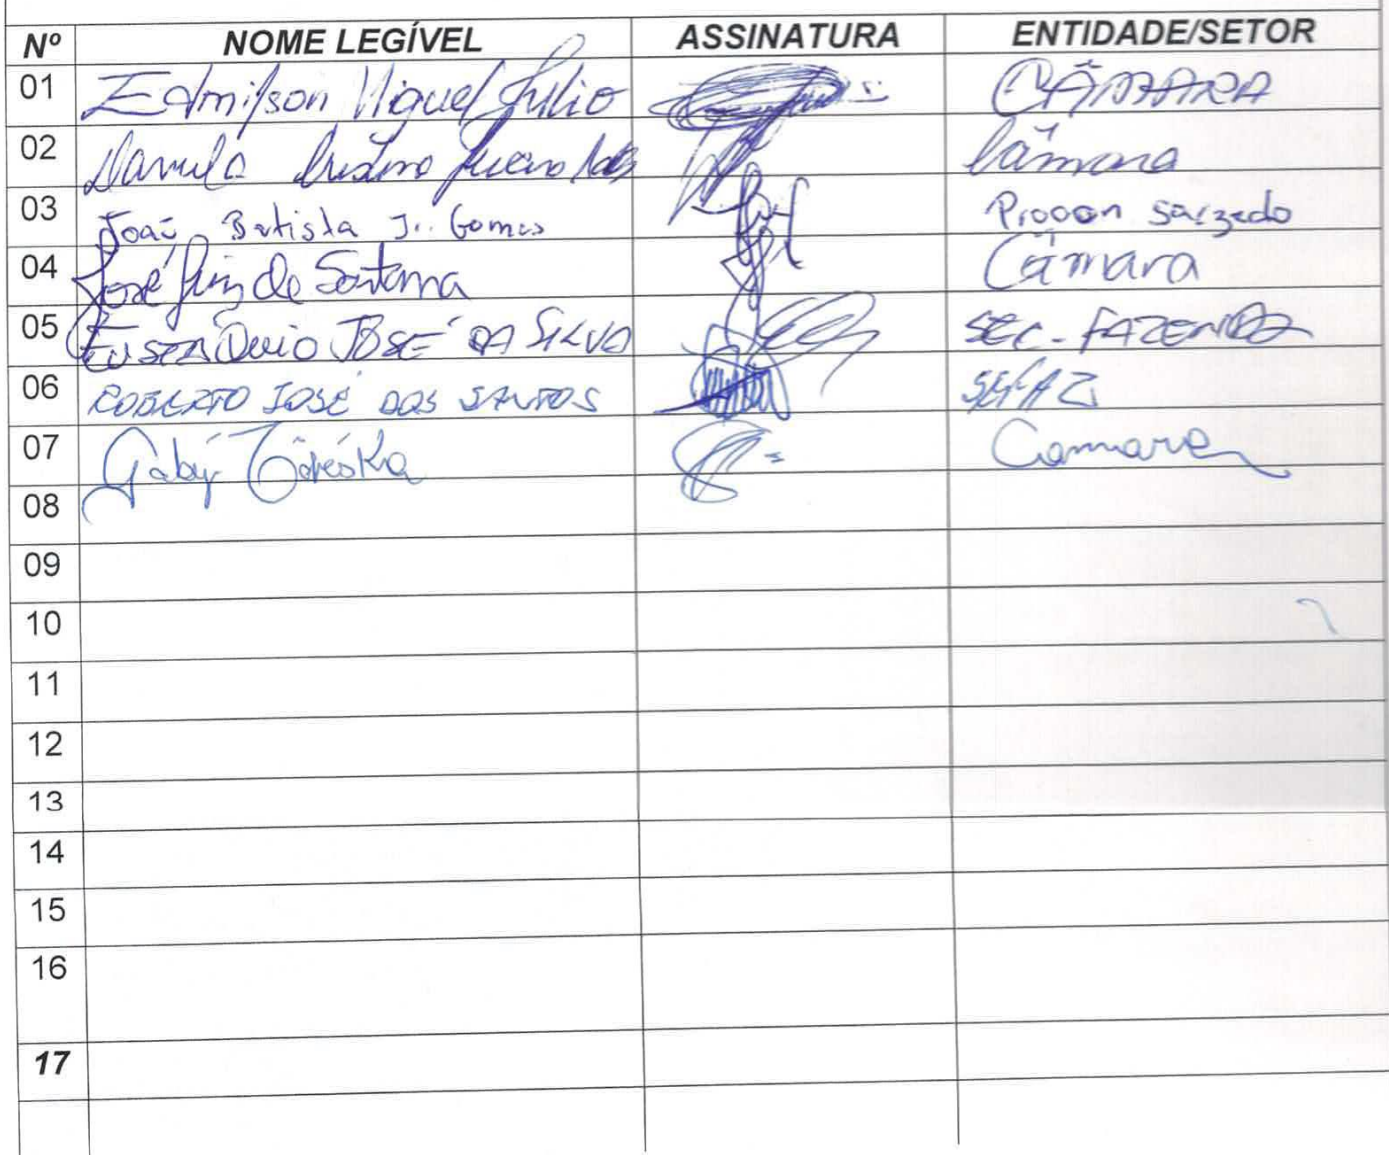 Nº NOME LEGÍVEL ASSINATURA ENTIDADE/SETOR
01 Edmilson Miguel Julio CÂMARA
02 Câmara
03 João Batista J. Gomes Procon Sarzedo
04 José Luiz de Santana Câmara
05 EUSTÁQUIO JOSÉ DA SILVA SEC. FAZENDA
06 ROBERTO JOSÉ DOS SANTOS SEFAZ
07 Gaby Camara
08
09
10
11
12
13
14
15
16
17